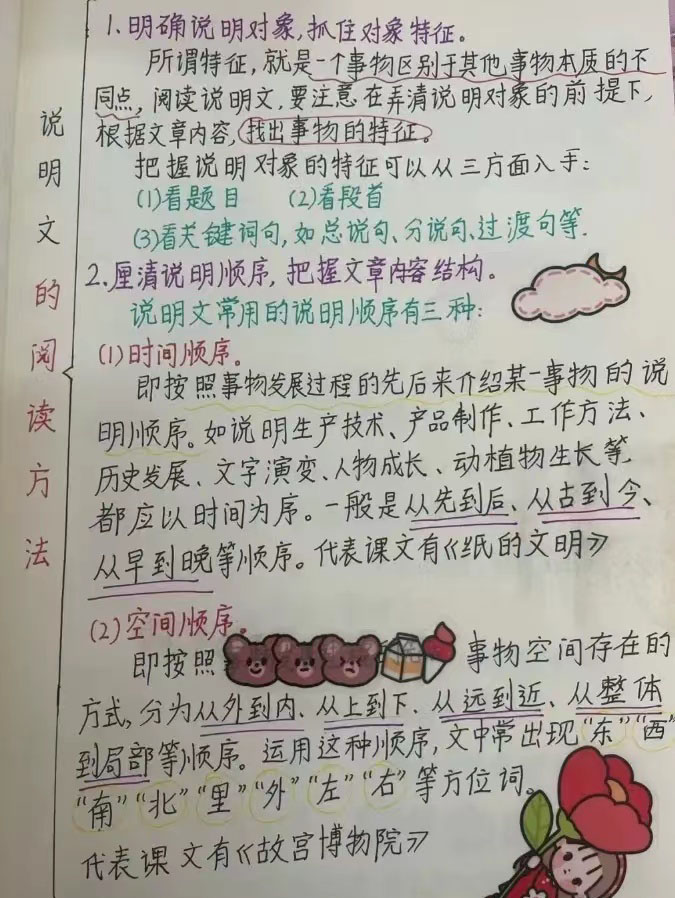 说明文的阅读方法
1.明确说明对象,抓住对象特征。
所谓特征,就是一个事物区别于其他事物本质的不
同点,阅读说明文,要注意在弄清说明对象的前提下,
根据文章内容,找出事物的特征。
把握说明对象的特征可以从三方面入手:
(1)看题目 (2)看段首
(3)看关键词句,如总说句、分说句、过渡句等.
2.厘清说明顺序,把握文章内容结构。
说明文常用的说明顺序有三种:
(1)时间顺序。
即按照事物发展过程的先后来介绍某一事物的说
明顺序。如说明生产技术、产品制作、工作方法、
历史发展、文字演变、人物成长、动植物生长等,
都应以时间为序。一般是从先到后、从古到今、
从早到晚等顺序。代表课文有《纸的文明》
(2)空间顺序。
即按照 事物空间存在的
方式,分为从外到内、从上到下、从远到近、从整体
到局部等顺序。运用这种顺序,文中常出现“东”“西”
“南”“北”“里”“外”“左”“右”等方位词。
代表课文有《故宫博物院》